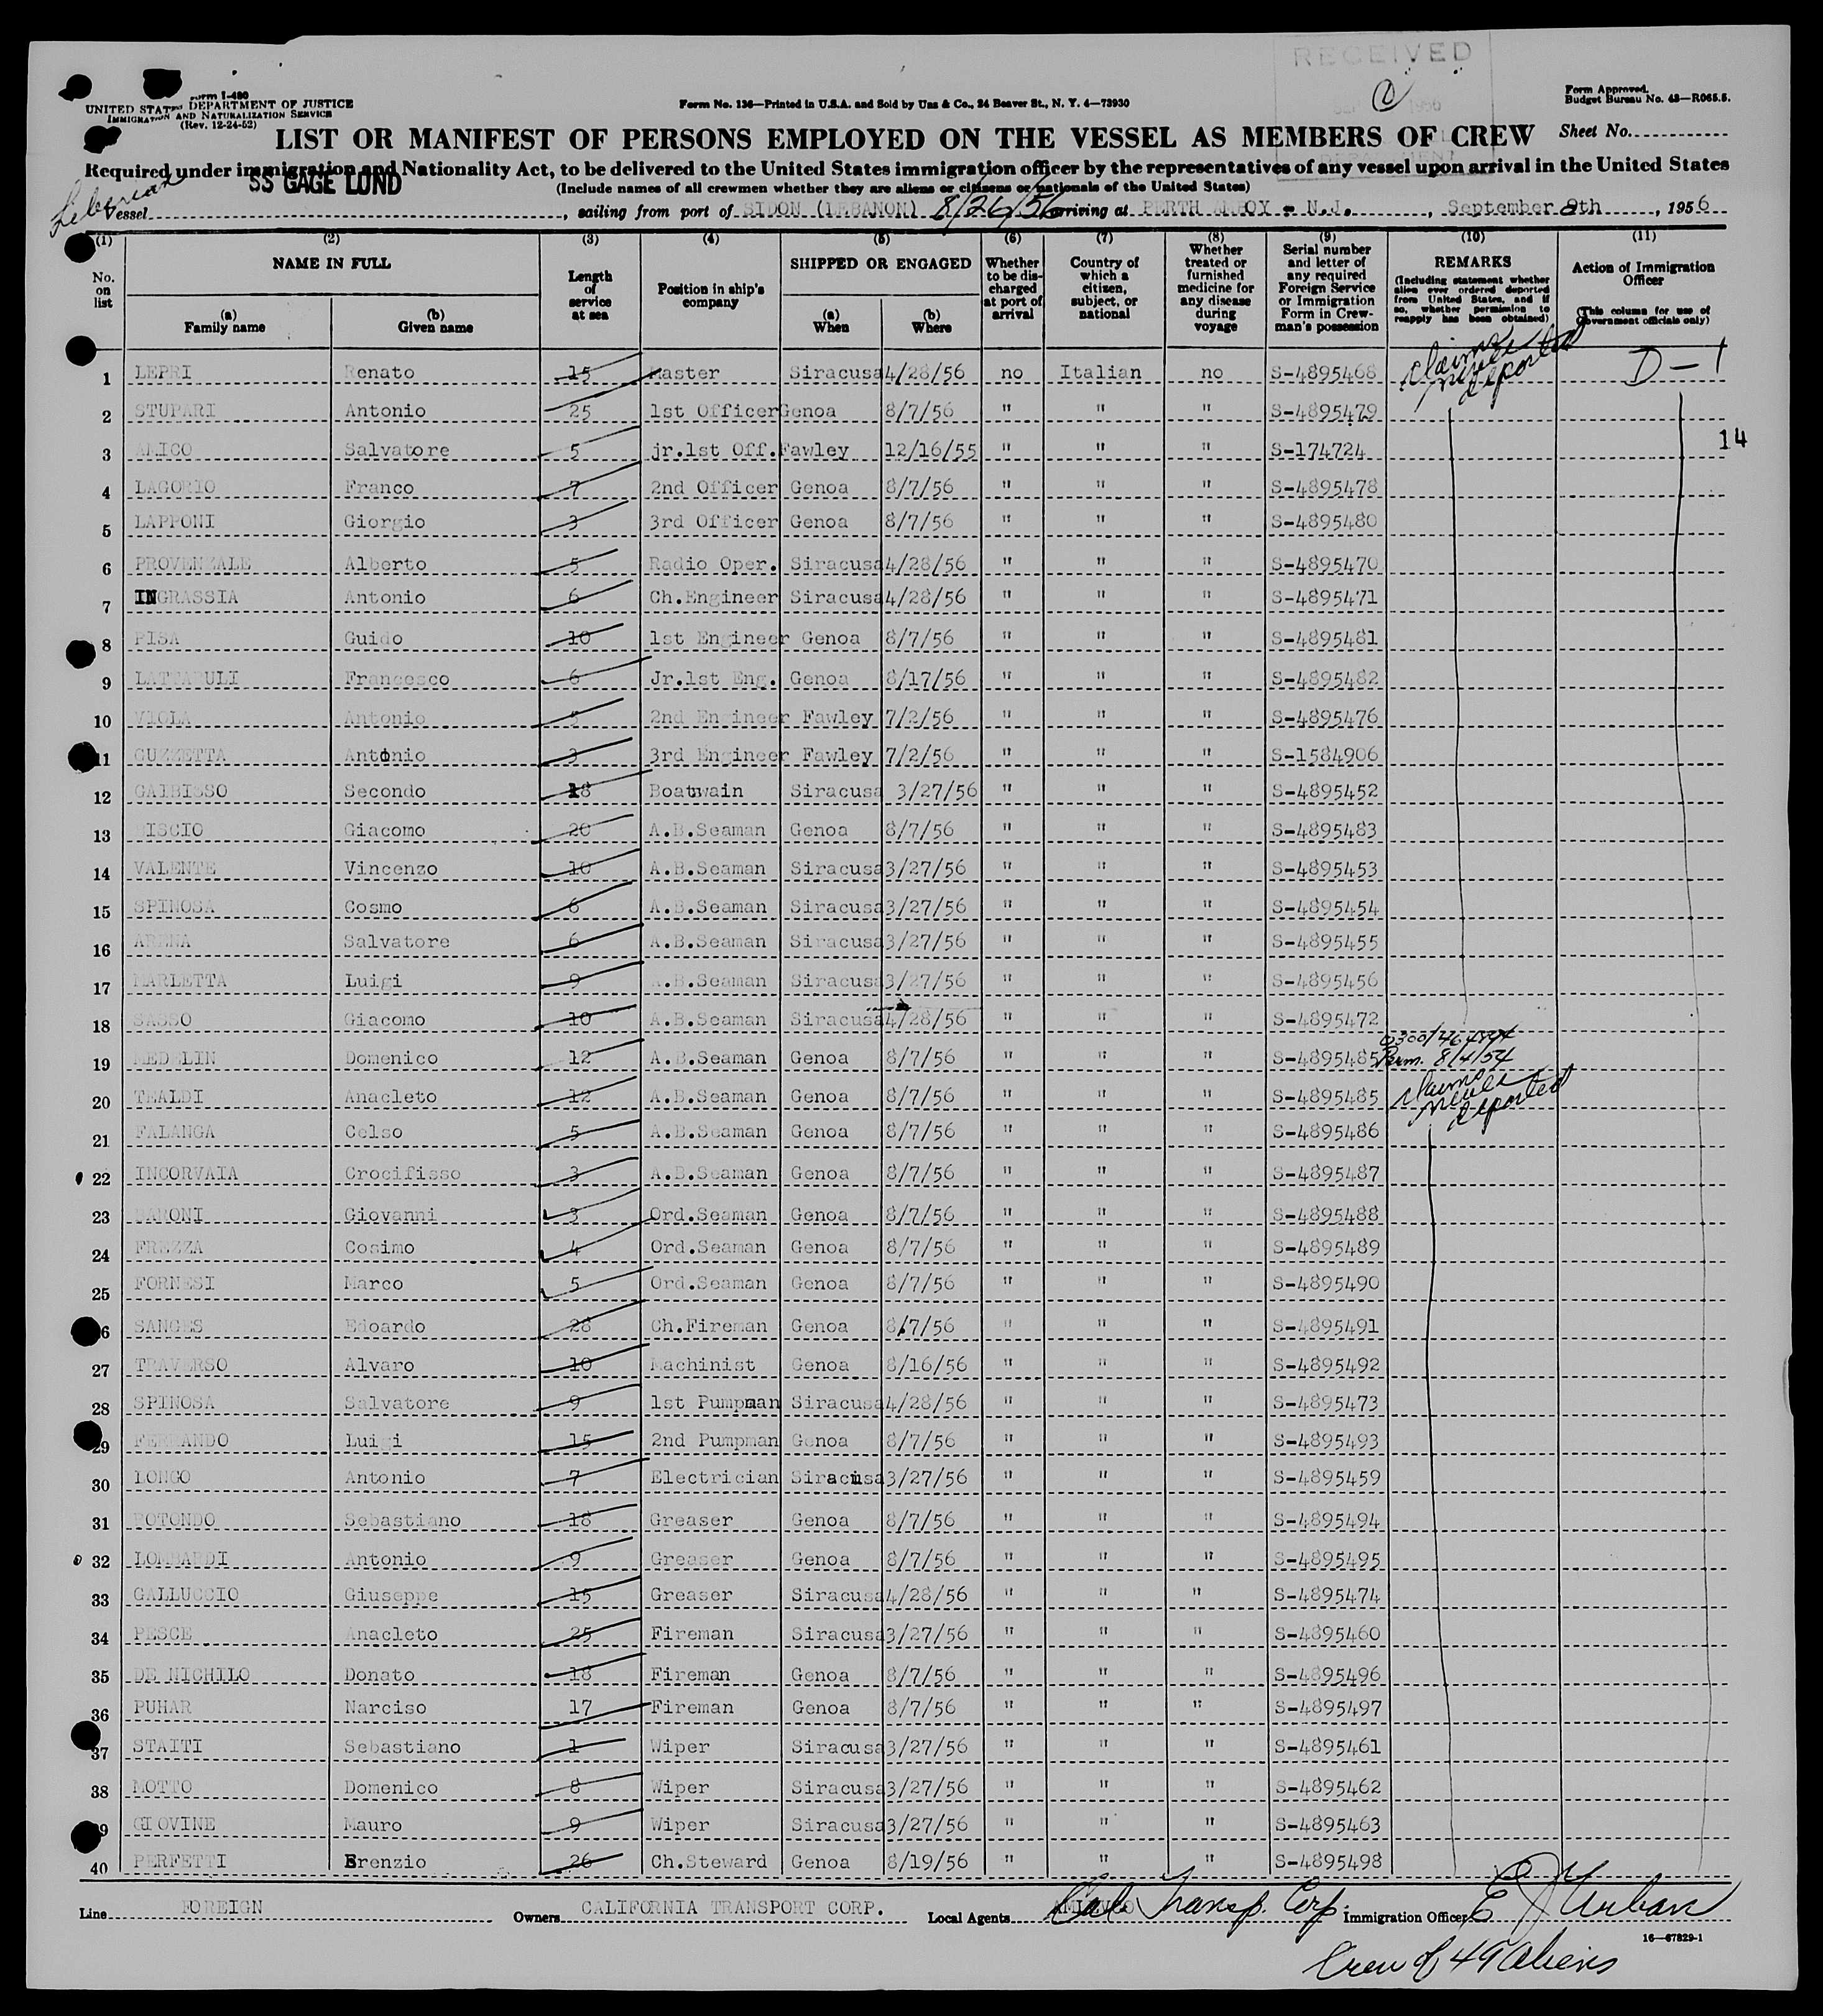 RECEIVED
Form I-480
UNITED STATES DEPARTMENT OF JUSTICE
IMMIGRATION AND NATURALIZATION SERVICE
(Rev. 12-24-52)
Form No. 136—Printed in U.S.A. and Sold by Unz & Co., 24 Beaver St., N. Y. 4—73930
Form Approved.
Budget Bureau No. 43—R065.5.
LIST OR MANIFEST OF PERSONS EMPLOYED ON THE VESSEL AS MEMBERS OF CREW
Sheet No.
Required under immigration and Nationality Act, to be delivered to the United States immigration officer by the representatives of any vessel upon arrival in the United States
(Include names of all crewmen whether they are aliens or citizens or nationals of the United States)
Liberian
Vessel SS GAGE LUND, sailing from port of SIDON (LEBANON) 8/26/56 arriving at PERTH AMBOY - N.J., September 8th, 1956
(1) (2) (3) (4) (5) (6) (7) (8) (9) (10) (11)
No. on list
NAME IN FULL
(a) Family name
(b) Given name
Length of service at sea
Position in ship's company
SHIPPED OR ENGAGED
(a) When
(b) Where
Whether to be discharged at port of arrival
Country of which a citizen, subject, or national
Whether treated or furnished medicine for any disease during voyage
Serial number and letter of any required Foreign Service or Immigration Form in Crewman's possession
REMARKS
(Including statement whether alien ever ordered deported from United States, and if so, whether permission to reapply has been obtained)
Action of Immigration Officer
(This column for use of Government officials only)
1 LEPRI Renato 15 Master Siracusa 4/28/56 no Italian no S-4895468 claims never deported D-1
2 STUPARI Antonio 25 1st Officer Genoa 8/7/56 " " " S-4895479
3 AMICO Salvatore 5 jr.1st Off. Fawley 12/16/55 " " " S-174724 14
4 LAGORIO Franco 7 2nd Officer Genoa 8/7/56 " " " S-4895478
5 LAPPONI Giorgio 3 3rd Officer Genoa 8/7/56 " " " S-4895480
6 PROVENZALE Alberto 5 Radio Oper. Siracusa 4/28/56 " " " S-4895470
7 INGRASSIA Antonio 6 Ch.Engineer Siracusa 4/28/56 " " " S-4895471
8 PISA Guido 10 1st Engineer Genoa 8/7/56 " " " S-4895481
9 LATTARULI Francesco 6 Jr.1st Eng. Genoa 8/17/56 " " " S-4895482
10 VIOLA Antonio 5 2nd Engineer Fawley 7/2/56 " " " S-4895476
11 GUZZETTA Antonio 3 3rd Engineer Fawley 7/2/56 " " " S-1584906
12 GAIBISSO Secondo 18 Boatwain Siracusa 3/27/56 " " " S-4895452
13 Giacomo 20 A.B.Seaman Genoa 8/7/56 " " " S-4895483
14 VALENTE Vincenzo 10 A.B.Seaman Siracusa 3/27/56 " " " S-4895453
15 SPINOSA Cosmo 6 A.B.Seaman Siracusa 3/27/56 " " " S-4895454
16 ARENA Salvatore 6 A.B.Seaman Siracusa 3/27/56 " " " S-4895455
17 MARLETTA Luigi 9 A.B.Seaman Siracusa 3/27/56 " " " S-4895456
18 SASSO Giacomo 10 A.B.Seaman Siracusa 4/28/56 " " " S-4895472
19 Domenico 12 A.B.Seaman Genoa 8/7/56 " " " S-4895485 Perm. 8/4/54
20 TEALDI Anacleto 12 A.B.Seaman Genoa 8/7/56 " " " S-4895485 claims never deported
21 FALANGA Celso 5 A.B.Seaman Genoa 8/7/56 " " " S-4895486
22 INCORVAIA Crocifisso 3 A.B.Seaman Genoa 8/7/56 " " " S-4895487
23 BARONI Giovanni 3 Ord.Seaman Genoa 8/7/56 " " " S-4895488
24 FREZZA Cosimo 4 Ord.Seaman Genoa 8/7/56 " " " S-4895489
25 FORNESI Marco 5 Ord.Seaman Genoa 8/7/56 " " " S-4895490
26 SANGES Edoardo 28 Ch.Fireman Genoa 8/7/56 " " " S-4895491
27 TRAVERSO Alvaro 10 Machinist Genoa 8/16/56 " " " S-4895492
28 SPINOSA Salvatore 9 1st Pumpman Siracusa 4/28/56 " " " S-4895473
29 FERRANDO Luigi 15 2nd Pumpman Genoa 8/7/56 " " " S-4895493
30 LONGO Antonio 7 Electrician Siracusa 3/27/56 " " " S-4895459
31 ROTONDO Sebastiano 18 Greaser Genoa 8/7/56 " " " S-4895494
32 LOMBARDI Antonio 9 Greaser Genoa 8/7/56 " " " S-4895495
33 GALLUCCIO Giuseppe 15 Greaser Siracusa 4/28/56 " " " S-4895474
34 PESCE Anacleto 25 Fireman Siracusa 3/27/56 " " " S-4895460
35 DE NICHILO Donato 18 Fireman Genoa 8/7/56 " " " S-4895496
36 PUHAR Narciso 17 Fireman Genoa 8/7/56 " " " S-4895497
37 STAITI Sebastiano 1 Wiper Siracusa 3/27/56 " " " S-4895461
38 MOTTO Domenico 8 Wiper Siracusa 3/27/56 " " " S-4895462
39 GIOVINE Mauro 9 Wiper Siracusa 3/27/56 " " " S-4895463
40 PERFETTI Brenzio 26 Ch.Steward Genoa 8/19/56 " " " S-4895498
Line FOREIGN Owners CALIFORNIA TRANSPORT CORP. Local Agents Cal Transp. Corp. Immigration Officer E J Urban
16—67829-1
Crew of 49 aliens